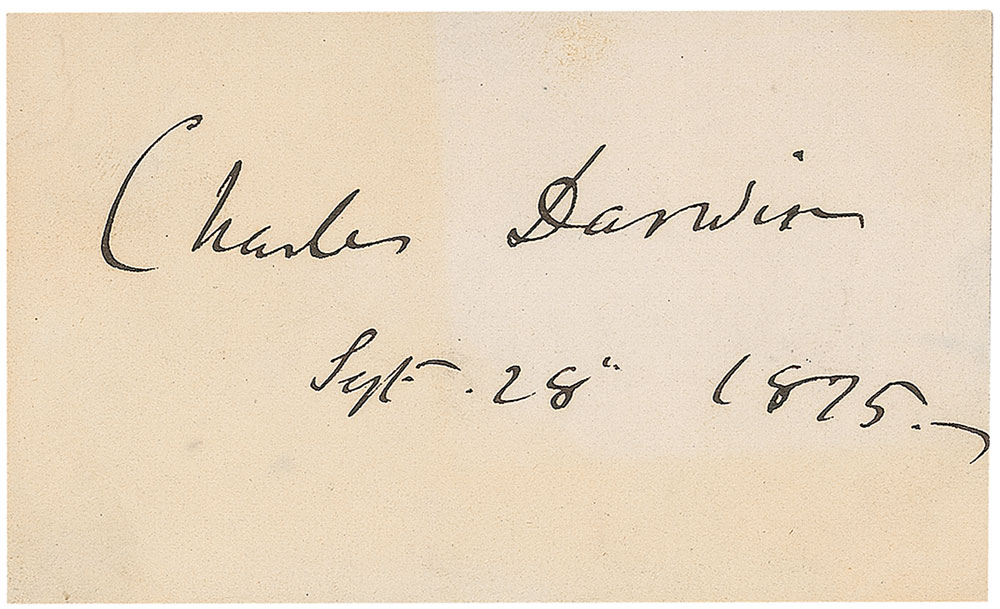 Charles Darwin
Sept. 28" 1875.